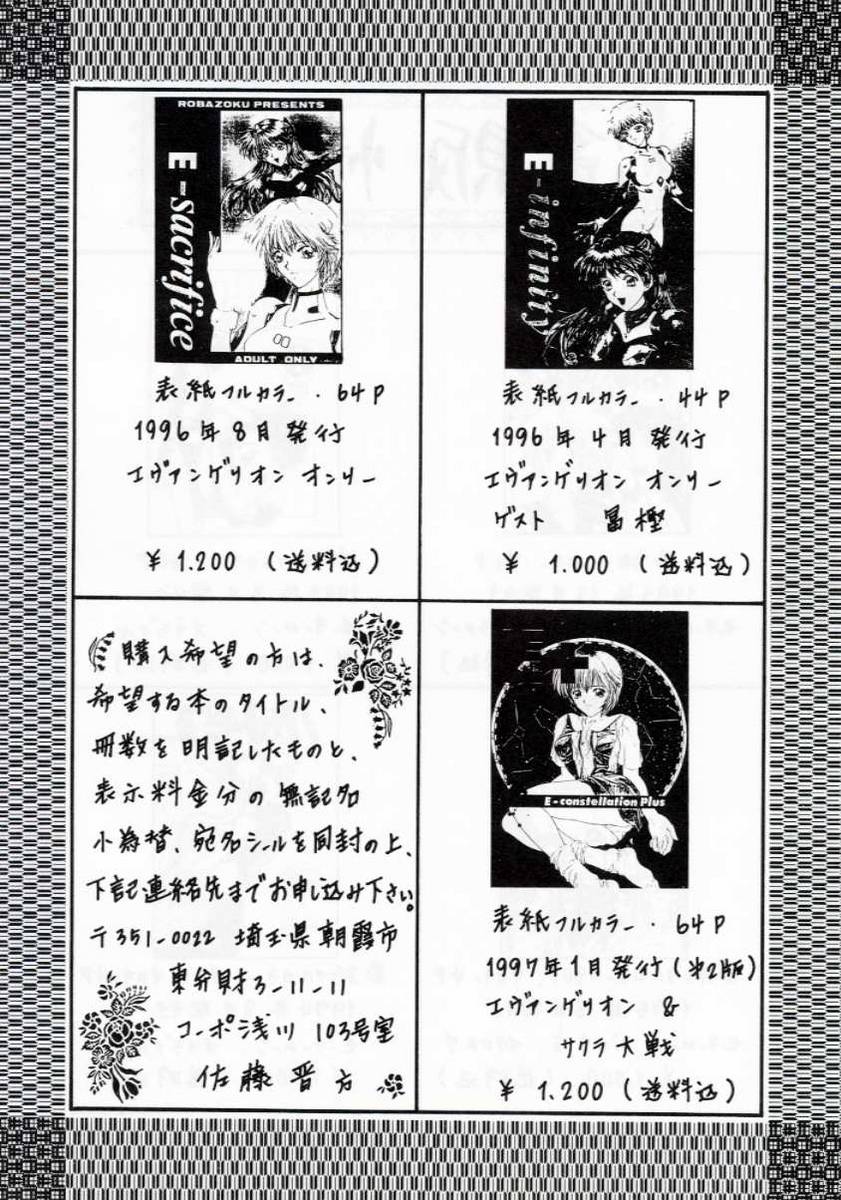 ROBAZOKU PRESENTS
E-sacrifice
ADULT ONLY
表紙フルカラー・64P
1996年8月発行
エヴァンゲリオン オンリー
¥1.200(送料込)
E-infinity
表紙フルカラー・44P
1996年4月発行
エヴァンゲリオン オンリー
ゲスト 冨樫
¥1.000(送料込)
購入希望の方は、
希望する本のタイトル、
冊数を明記したものと、
表示料金分の無記名
小為替、宛名シールを同封の上、
下記連絡先までお申し込み下さい。
〒351-0022 埼玉県朝霞市
東弁財3-11-11
コーポラ浅川 103号室
佐藤晋方
E-constellation Plus
表紙フルカラー・64P
1997年1月発行(第2版)
エヴァンゲリオン &
サクラ大戦
¥1.200(送料込)